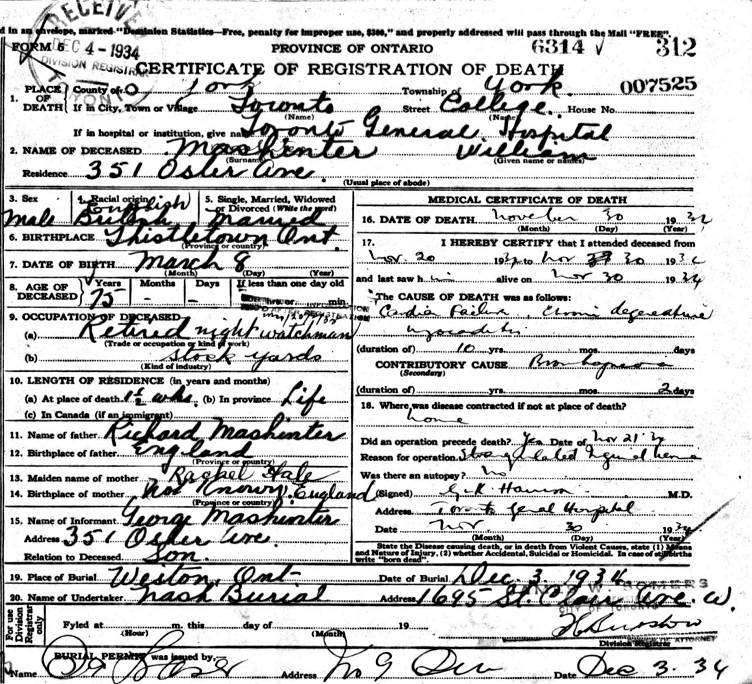 d in an envelope, marked "Dominion Statistics—Free, penalty for improper use, $300," and properly addressed will pass through the Mail "FREE".
RECEIVED
DEC 4 - 1934
DIVISION REGISTRAR
FORM 6 PROVINCE OF ONTARIO 6314 √ 312
CERTIFICATE OF REGISTRATION OF DEATH
007525
1. PLACE OF DEATH County of York Township of York
If in City, Town or Village Toronto Street College House No.
(Name) (Name)
If in hospital or institution, give name Toronto General Hospital
2. NAME OF DECEASED Mashinter William
(Surname) (Given name or names)
Residence 351 Osler Ave.
(Usual place of abode)
3. Sex 4. Racial origin 5. Single, Married, Widowed or Divorced (Write the word)
Male English British Married
6. BIRTHPLACE Thistletown Ont.
(Province or country)
7. DATE OF BIRTH March 8
(Month) (Day) (Year)
8. AGE OF DECEASED Years Months Days If less than one day old
75 - - hrs. or min.
9. OCCUPATION OF DECEASED
(a) Retired night watchman
(Trade or occupation or kind of work)
(b) Stock yards
(Kind of industry)
10. LENGTH OF RESIDENCE (in years and months)
(a) At place of death wks. (b) In province Life
(c) In Canada (if an immigrant)
11. Name of father Richard Mashinter
12. Birthplace of father England
(Province or country)
13. Maiden name of mother Rachel Hale
14. Birthplace of mother Not Known England
(Province or country)
15. Name of Informant George Mashinter
Address 351 Osler Ave.
Relation to Deceased Son.
MEDICAL CERTIFICATE OF DEATH
16. DATE OF DEATH November 30 1934
(Month) (Day) (Year)
17. I HEREBY CERTIFY that I attended deceased from
Nov. 20 1934 to Nov 30 1934
and last saw him alive on Nov 30 1934
The CAUSE OF DEATH was as follows:
Cardiac Failure, Chronic degenerative
myocarditis
(duration of) 10 yrs. mos. days
CONTRIBUTORY CAUSE
(Secondary)
(duration of) yrs. mos. 2 days
18. Where was disease contracted if not at place of death?
home
Did an operation precede death? Yes Date of Nov 21. 34
Reason for operation Strangulated Inguinal hernia
Was there an autopsy? No
(Signed) M.D.
Address Toronto General Hospital
Date Nov 30 1934
(Month) (Day) (Year)
State the Disease causing death, or in death from Violent Causes, state (1) Means and Nature of Injury, (2) whether Accidental, Suicidal or Homicidal. In case of stillbirths write "born dead".
19. Place of Burial Weston, Ont. Date of Burial Dec. 3. 1934
20. Name of Undertaker Nash Burial Address 1695 St. Clair Ave. W.
For use Division Registrar only
Fyled at m. this day of 19
(Hour) (Month)
Division Registrar
BURIAL PERMIT was issued by
Name Address Date Dec 3. 34